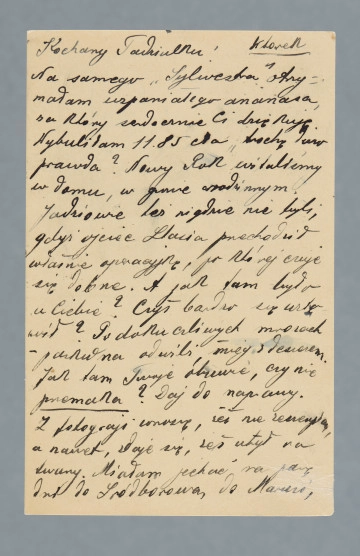 Kochany Tadziulku! Wtorek
Na samego „Sylwestra" otrzy-
małam wspaniałego ananasa,
za który serdecznie Ci dziękuję.
11.85
prawda? Nowy Rok witaliśmy
w domu, w gronie rodzinnym.
też nigdzie nie byli,
gdyż ojciec przechodził
właśnie operacyjkę, po której czuje
się dobrze. A jak tam było
u Ciebie? Czyś bardzo się
? Po dokuczliwych mrozach
odwilż i z deszczem.
Jak tam Twoje obuwie, czy nie
przemaka? Daj do naprawy.
Z fotografji wnoszę, żeś nie
a nawet, zdaje się, żeś utył na
twarzy. Miałam jechać na parę
dni do Śródborowa, do Marysi,